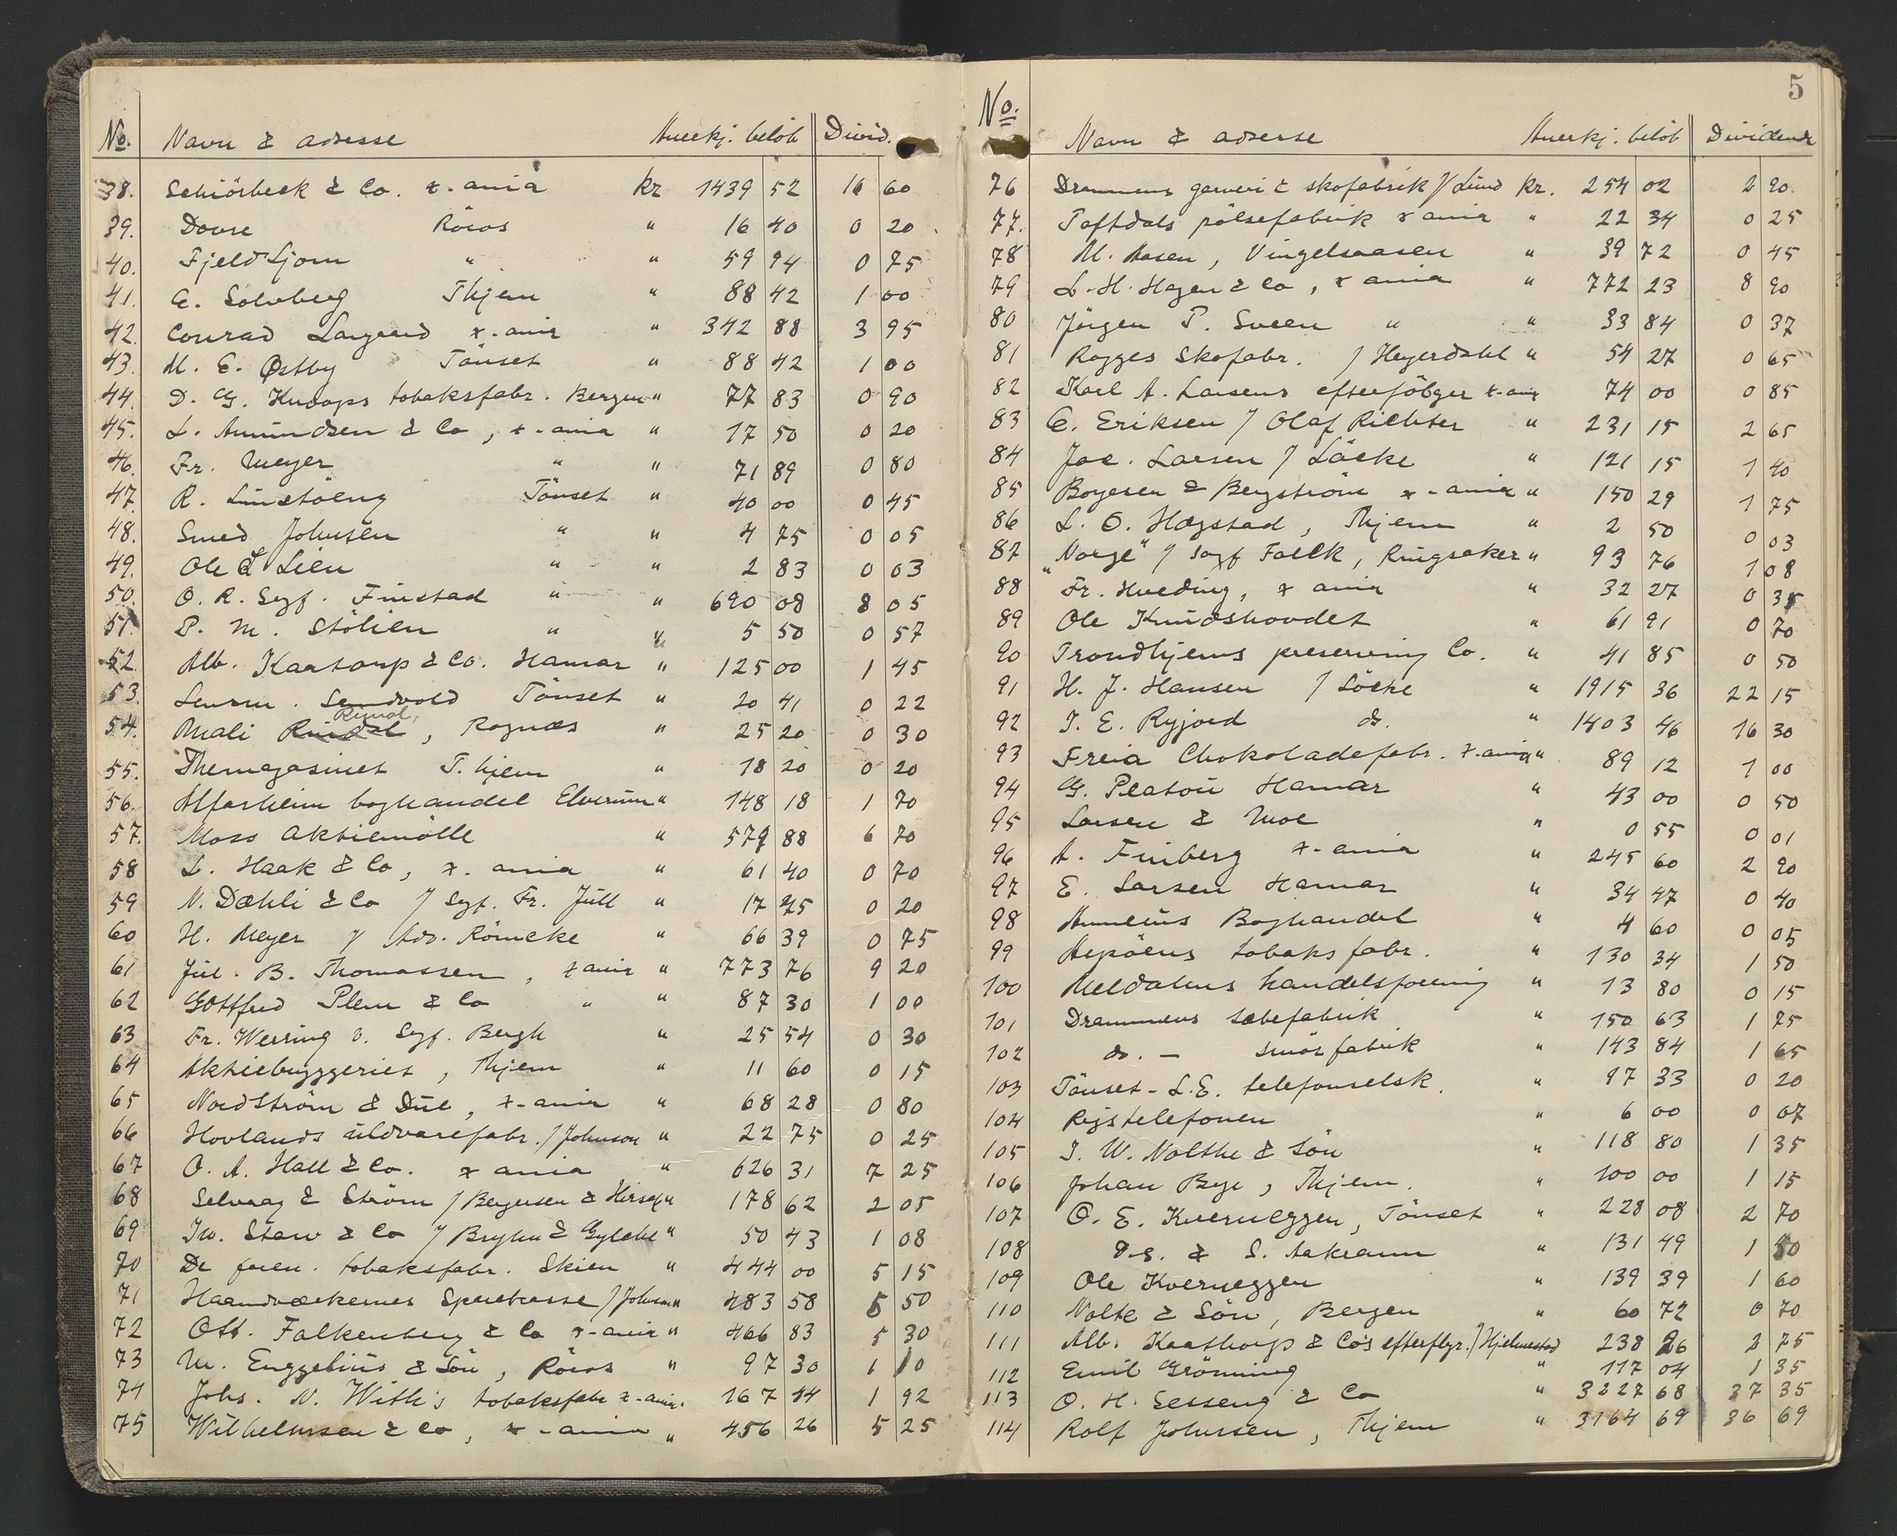 No. Navn & adresse Anerkj. beløb Divid.
38. Schiörbeck & Co. x-ania kr 1439 52 16 60
39. Dovre Röros " 16 40 0 20
40. Fjeld-Ljom " " 59 94 0 75
41. E. Solvberg Thjem " 88 42 1 00
42. Conrad Langaard x-ania " 342 88 3 95
43. M. E. Østby Tönset " 88 42 1 00
44. D. G. Knoops tobaksfabr. Bergen " 77 83 0 90
45. L. Amundsen & Co, x-ania " 17 50 0 20
46. Fr. Meyer " " 71 89 0 80
47. R. Tönset " 40 00 0 45
48. Smed Johnsen " " 4 75 0 05
49. Ole L Lien " " 2 83 0 03
50. O. R. Sagf. Finstad " " 690 08 8 05
51. P. M. Stölien " " 5 50 0 57
52. Alb. Kaatorp & Co. Hamar " 125 00 1 45
53. Sendvold Tönset " 20 41 0 22
54. Mali Rimol, Rognæs " 25 20 0 30
55. Themagasinet T.hjem " 18 20 0 20
56. Alfarheim boghandel Elverum " 148 18 1 70
57. Moss Aktiemölle " 579 88 6 70
58 L. Haak & Co, x. ania " 61 40 0 70
59 N. Dæhli & Co / Sagf. Fr. Jull " 17 75 0 20
60 H. Meyer / Adv. Römcke " 66 39 0 75
61 Jul. B. Thomassen, x ania " 773 76 9 20
62 Gottfred Plem & Co " " 87 30 1 00
63 Fr. Werring v. Sagf. Bergh " 25 54 0 30
64 Aktiebryggeriet, Thjem " 11 60 0 15
65 Nordström & Due, x-ania " 68 28 0 80
66 Hovlands uldvarefabr. / Johnson " 22 75 0 25
67 O. A. Hall & Co. x ania " 626 31 7 25
68 Selvaag & Ström / Bergersen & Hirsch " 178 62 2 05
69 Iw. Staw & Co / Bryhn & Gylche " 50 43 1 08
70 De foren. tobaksfabr. Skien " 444 00 5 15
71 Haandværkernes Sparekasse / Johnson " 483 58 5 50
72 Ott. Falkenberg & Co x-ania " 466 83 5 30
73 M. Engzelius & Sön, Röros " 97 30 1 10
74 Johs. N. With's tobaksfabr x-ania " 167 44 1 92
75 Wilhelmsen & Co, x-ania " 456 26 5 25
5
No. Navn & adresse Anerkj. beløb Dividende
76 Drammens garveri & skofabrik / Lund kr. 254 02 2 90
77. Toftdals pölsefabrik x ania " 22 34 0 25
78 M. Aasen, Vingelsaasen " 39 72 0 45
79 L. H. Hagen & Co, x ania " 772 23 8 90
80 Jörgen P. Sveen " " 33 84 0 37
81 Rogges Skofabr. / Heyerdahl " 54 27 0 65
82 Karl A. Larsens efterfölger x-ania 74 00 0 85
83 C. Eriksen / Olaf Richter " 231 15 2 65
84 Jac. Larsen / Löcke " 121 15 1 40
85 Boyesen & Bergström x-ania " 150 29 1 75
86 L. O. Hægstad, Thjem " 2 50 0 03
87 "Norge" / Sagf Falck, Ringsaker " 93 76 1 08
88 Fr. Hveding, x ania " 32 27 0 35
89 Ole Knudshovdet " 61 91 0 70
90 Trondhjems preserving Co. " 41 85 0 50
91 H. J. Hansen / Löcke " 1915 36 22 15
92 T. E. Ryjord do. " 1403 46 16 30
93 Freia Chokoladefabr. x-ania " 89 12 1 00
94 G. Platou Hamar " 43 00 0 50
95 Larsen & Moe " 0 55 0 01
96 A. Finberg x-ania " 245 60 2 90
97 E. Larsen Hamar " 34 47 0 40
98 Boghandel " 4 60 0 05
99 Aspöens tobaksfabr. " 130 34 1 50
100 Meldalens handelsforening " 13 80 0 15
101 Drammens sæbefabrik " 150 63 1 75
102 do. - smörfabrik " 143 84 1 65
103 Tönset-L.E. telefonselsk. " 97 33 0 20
104 Rigstelefonen " 6 00 0 07
105 I. W. Nolthe & Sön " 118 80 1 35
106 Johan Bye, Thjem. " 100 00 1 15
107 O. E. Kverneggen, Tönset " 228 08 2 70
108 & S. Aakrann " 131 49 1 50
109 Ole Kverneggen " 139 39 1 60
110 Nolte & Sön, Bergen " 60 72 0 70
111 Alb. Kaathorp & Co's efterflgr. / Hjelmestad 238 26 2 75
112 Emil Grönning " 117 04 1 35
113 O. H. Sesseng & Co " 3227 68 37 35
114 Rolf Johnsen, Thjem " 3164 69 36 69